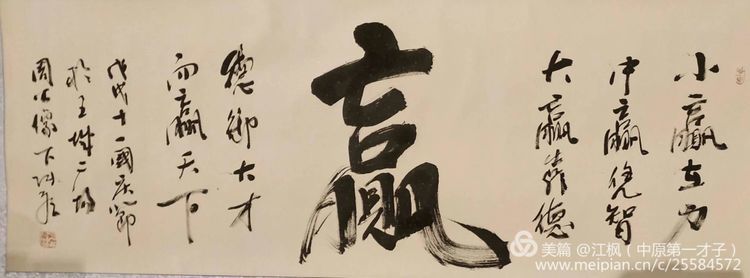 小赢在力
中赢凭智
大赢靠德
赢
德御大才
而赢天下
戊戌十一國庆節
於王城广場
周公像下
美篇 @江枫（中原第一才子）
www.meipian.cn/c/25584572